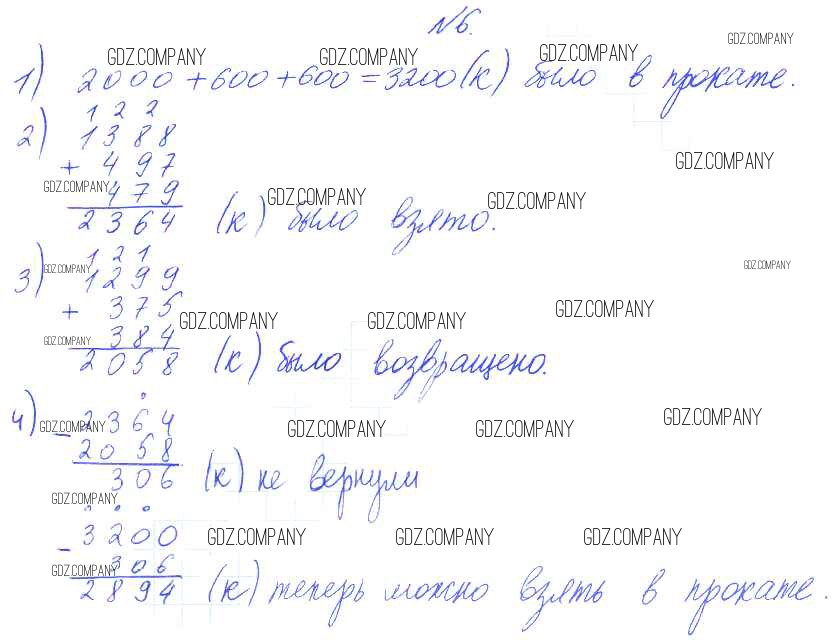 №6.
1) 2000 + 600 + 600 = 3200 (к) было в прокате.
1 2 2
2) 1388
+ 497
479
2364 (к) было взято.
1 2 1
3) 1299
+ 375
384
2058 (к) было возвращено.
4) - 2364
2058
306 (к) не вернули
- 3200
306
2894 (к) теперь можно взять в прокате.
GDZ.COMPANY GDZ.COMPANY GDZ.COMPANY GDZ.COMPANY
GDZ.COMPANY
GDZ.COMPANY GDZ.COMPANY GDZ.COMPANY
GDZ.COMPANY GDZ.COMPANY
GDZ.COMPANY GDZ.COMPANY GDZ.COMPANY
GDZ.COMPANY
GDZ.COMPANY GDZ.COMPANY GDZ.COMPANY GDZ.COMPANY
GDZ.COMPANY
GDZ.COMPANY GDZ.COMPANY GDZ.COMPANY
GDZ.COMPANY